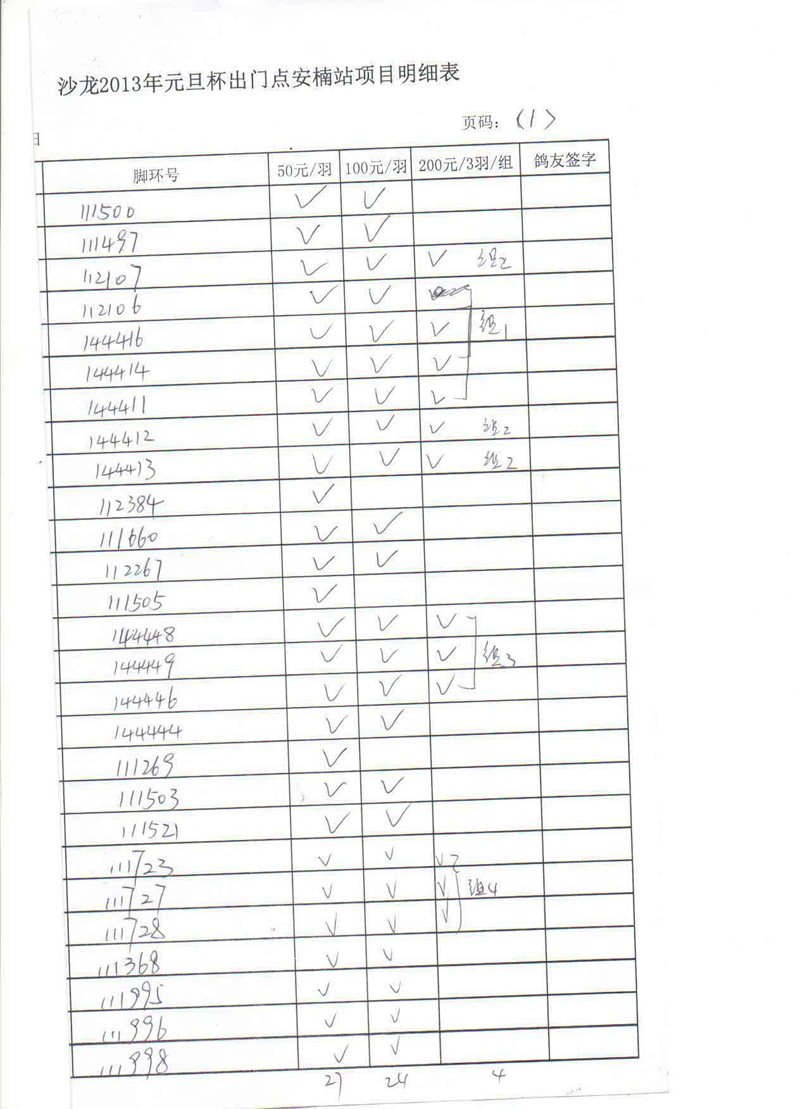 沙龙2013年元旦杯出门点安楠站项目明细表
页码：（1）
日
脚环号 50元/羽 100元/羽 200元/3羽/组 鸽友签字
111500 ✓ ✓
111497 ✓ ✓
112107 ✓ ✓ ✓ 组2
112106 ✓ ✓
144416 ✓ ✓ ✓ 组1
144414 ✓ ✓ ✓
144411 ✓ ✓ ✓
144412 ✓ ✓ ✓ 组2
144413 ✓ ✓ ✓ 组2
112384 ✓
111660 ✓ ✓
112267 ✓ ✓
111505 ✓
144448 ✓ ✓ ✓
144449 ✓ ✓ ✓ 组3
144446 ✓ ✓ ✓
144444 ✓ ✓
111269 ✓
111503 ✓ ✓
111521 ✓ ✓
111723 ✓ ✓ ✓
111727 ✓ ✓ ✓ 组4
111728 ✓ ✓ ✓
111368 ✓ ✓
111995 ✓ ✓
111996 ✓ ✓
111998 ✓ ✓
27 24 4